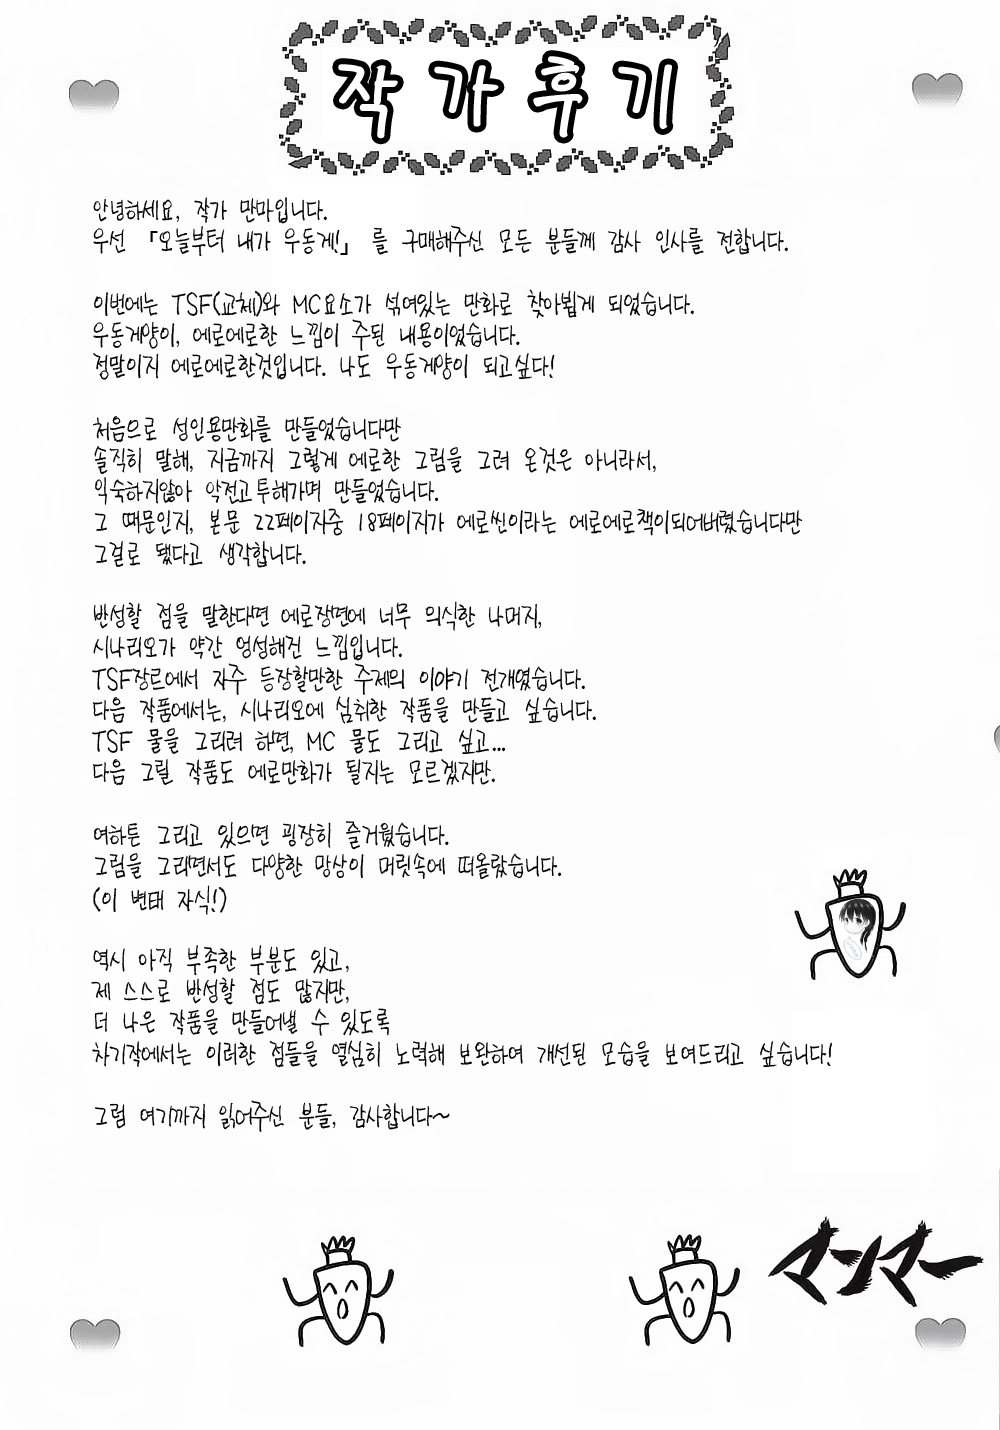 작가후기
안녕하세요, 작가 만마입니다.
우선 「오늘부터 내가 우동게!」 를 구매해주신 모든 분들께 감사 인사를 전합니다.
이번에는 TSF(교체)와 MC요소가 섞여있는 만화로 찾아뵙게 되었습니다.
우동게양이, 에로에로한 느낌이 주된 내용이었습니다.
정말이지 에로에로한것입니다. 나도 우동게양이 되고싶다!
처음으로 성인용만화를 만들었습니다만
솔직히 말해, 지금까지 그렇게 에로한 그림을 그려 온것은 아니라서,
익숙하지않아 악전고투해가며 만들었습니다.
그 때문인지, 본문 22페이지중 18페이지가 에로씬이라는 에로에로책이되어버렸습니다만
그걸로 됐다고 생각합니다.
반성할 점을 말한다면 에로장면에 너무 의식한 나머지,
시나리오가 약간 엉성해진 느낌입니다.
TSF장르에서 자주 등장할만한 주제의 이야기 전개였습니다.
다음 작품에서는, 시나리오에 심취한 작품을 만들고 싶습니다.
TSF 물을 그리려 하면, MC 물도 그리고 싶고...
다음 그릴 작품도 에로만화가 될지는 모르겠지만.
여하튼 그리고 있으면 굉장히 즐거웠습니다.
그림을 그래면서도 다양한 망상이 머릿속에 떠올랐습니다.
(이 변태 자식!)
역시 아직 부족한 부분도 있고,
제 스스로 반성할 점도 많지만,
더 나은 작품을 만들어낼 수 있도록
차기작에서는 이러한 점들을 열심히 노력해 보완하여 개선된 모습을 보여드리고 싶습니다!
그럼 여기까지 읽어주신 분들, 감사합니다~
マンマー